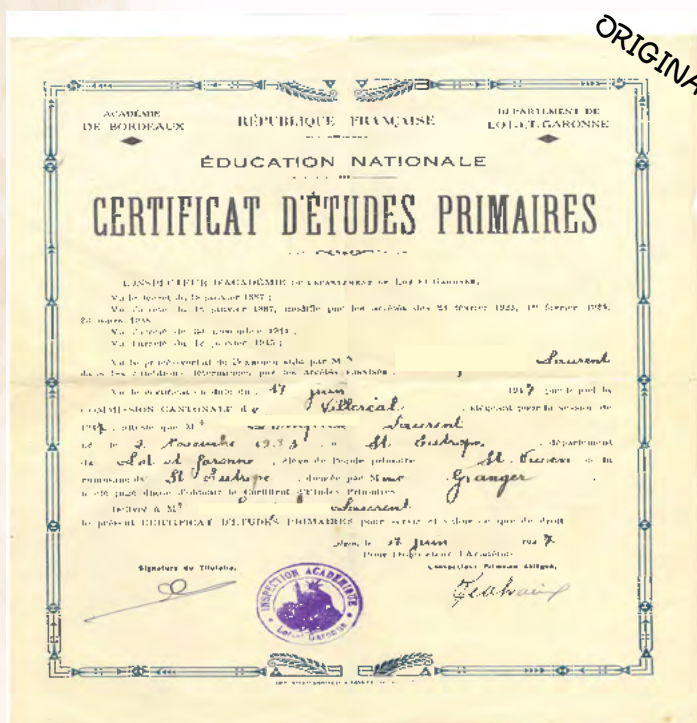 ORIGINA
ACADÉMIE
DE BORDEAUX
RÉPUBLIQUE FRANÇAISE
DÉPARTEMENT DE
LOT-ET-GARONNE
ÉDUCATION NATIONALE
CERTIFICAT D'ÉTUDES PRIMAIRES
L'INSPECTEUR D'ACADÉMIE DU DÉPARTEMENT DE LOT-ET-GARONNE,
Vu le décret du 18 janvier 1887 ;
Vu l'arrêté du 18 janvier 1887, modifié par les arrêtés des 24 février 1923, 1er février 1924,
Vu l'arrêté du novembre
Vu l'arrêté du janvier 1945 ;
Vu le procès-verbal de l'examen subi par M Laurent
dans les conditions déterminées par les arrêtés susvisés ;
Vu le certificat en date du 17 juin 1947 par lequel la
COMMISSION CANTONALE de Villeréal, siégeant pour la session de
1947, atteste que M Laurent
né le Novembre 1933, à St Eutrope, département
de Lot et Garonne, élève de l'école primaire St Vivien de la
commune de St Eutrope, dirigée par Mme Granger
a été jugé digne d'obtenir le Certificat d'Études Primaires
Délivre à M Laurent
le présent CERTIFICAT D'ÉTUDES PRIMAIRES pour servir et valoir ce que de droit
Agen, le 17 juin 1947
Pour l'Inspecteur d'Académie
Signature du Titulaire,
L'Inspecteur Primaire délégué,
INSPECTION ACADÉMIQUE
Lot-et-Garonne